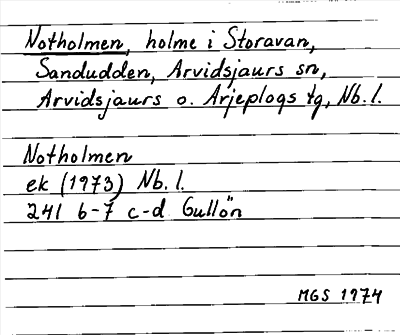 Notholmen, holme i Storavan,
Sandudden, Arvidsjaurs sn,
Arvidsjaurs o. Arjeplogs tg, Nb. l.
Notholmen
ek (1973) Nb. l.
241 6-7 c-d Gullön
MGS 1974